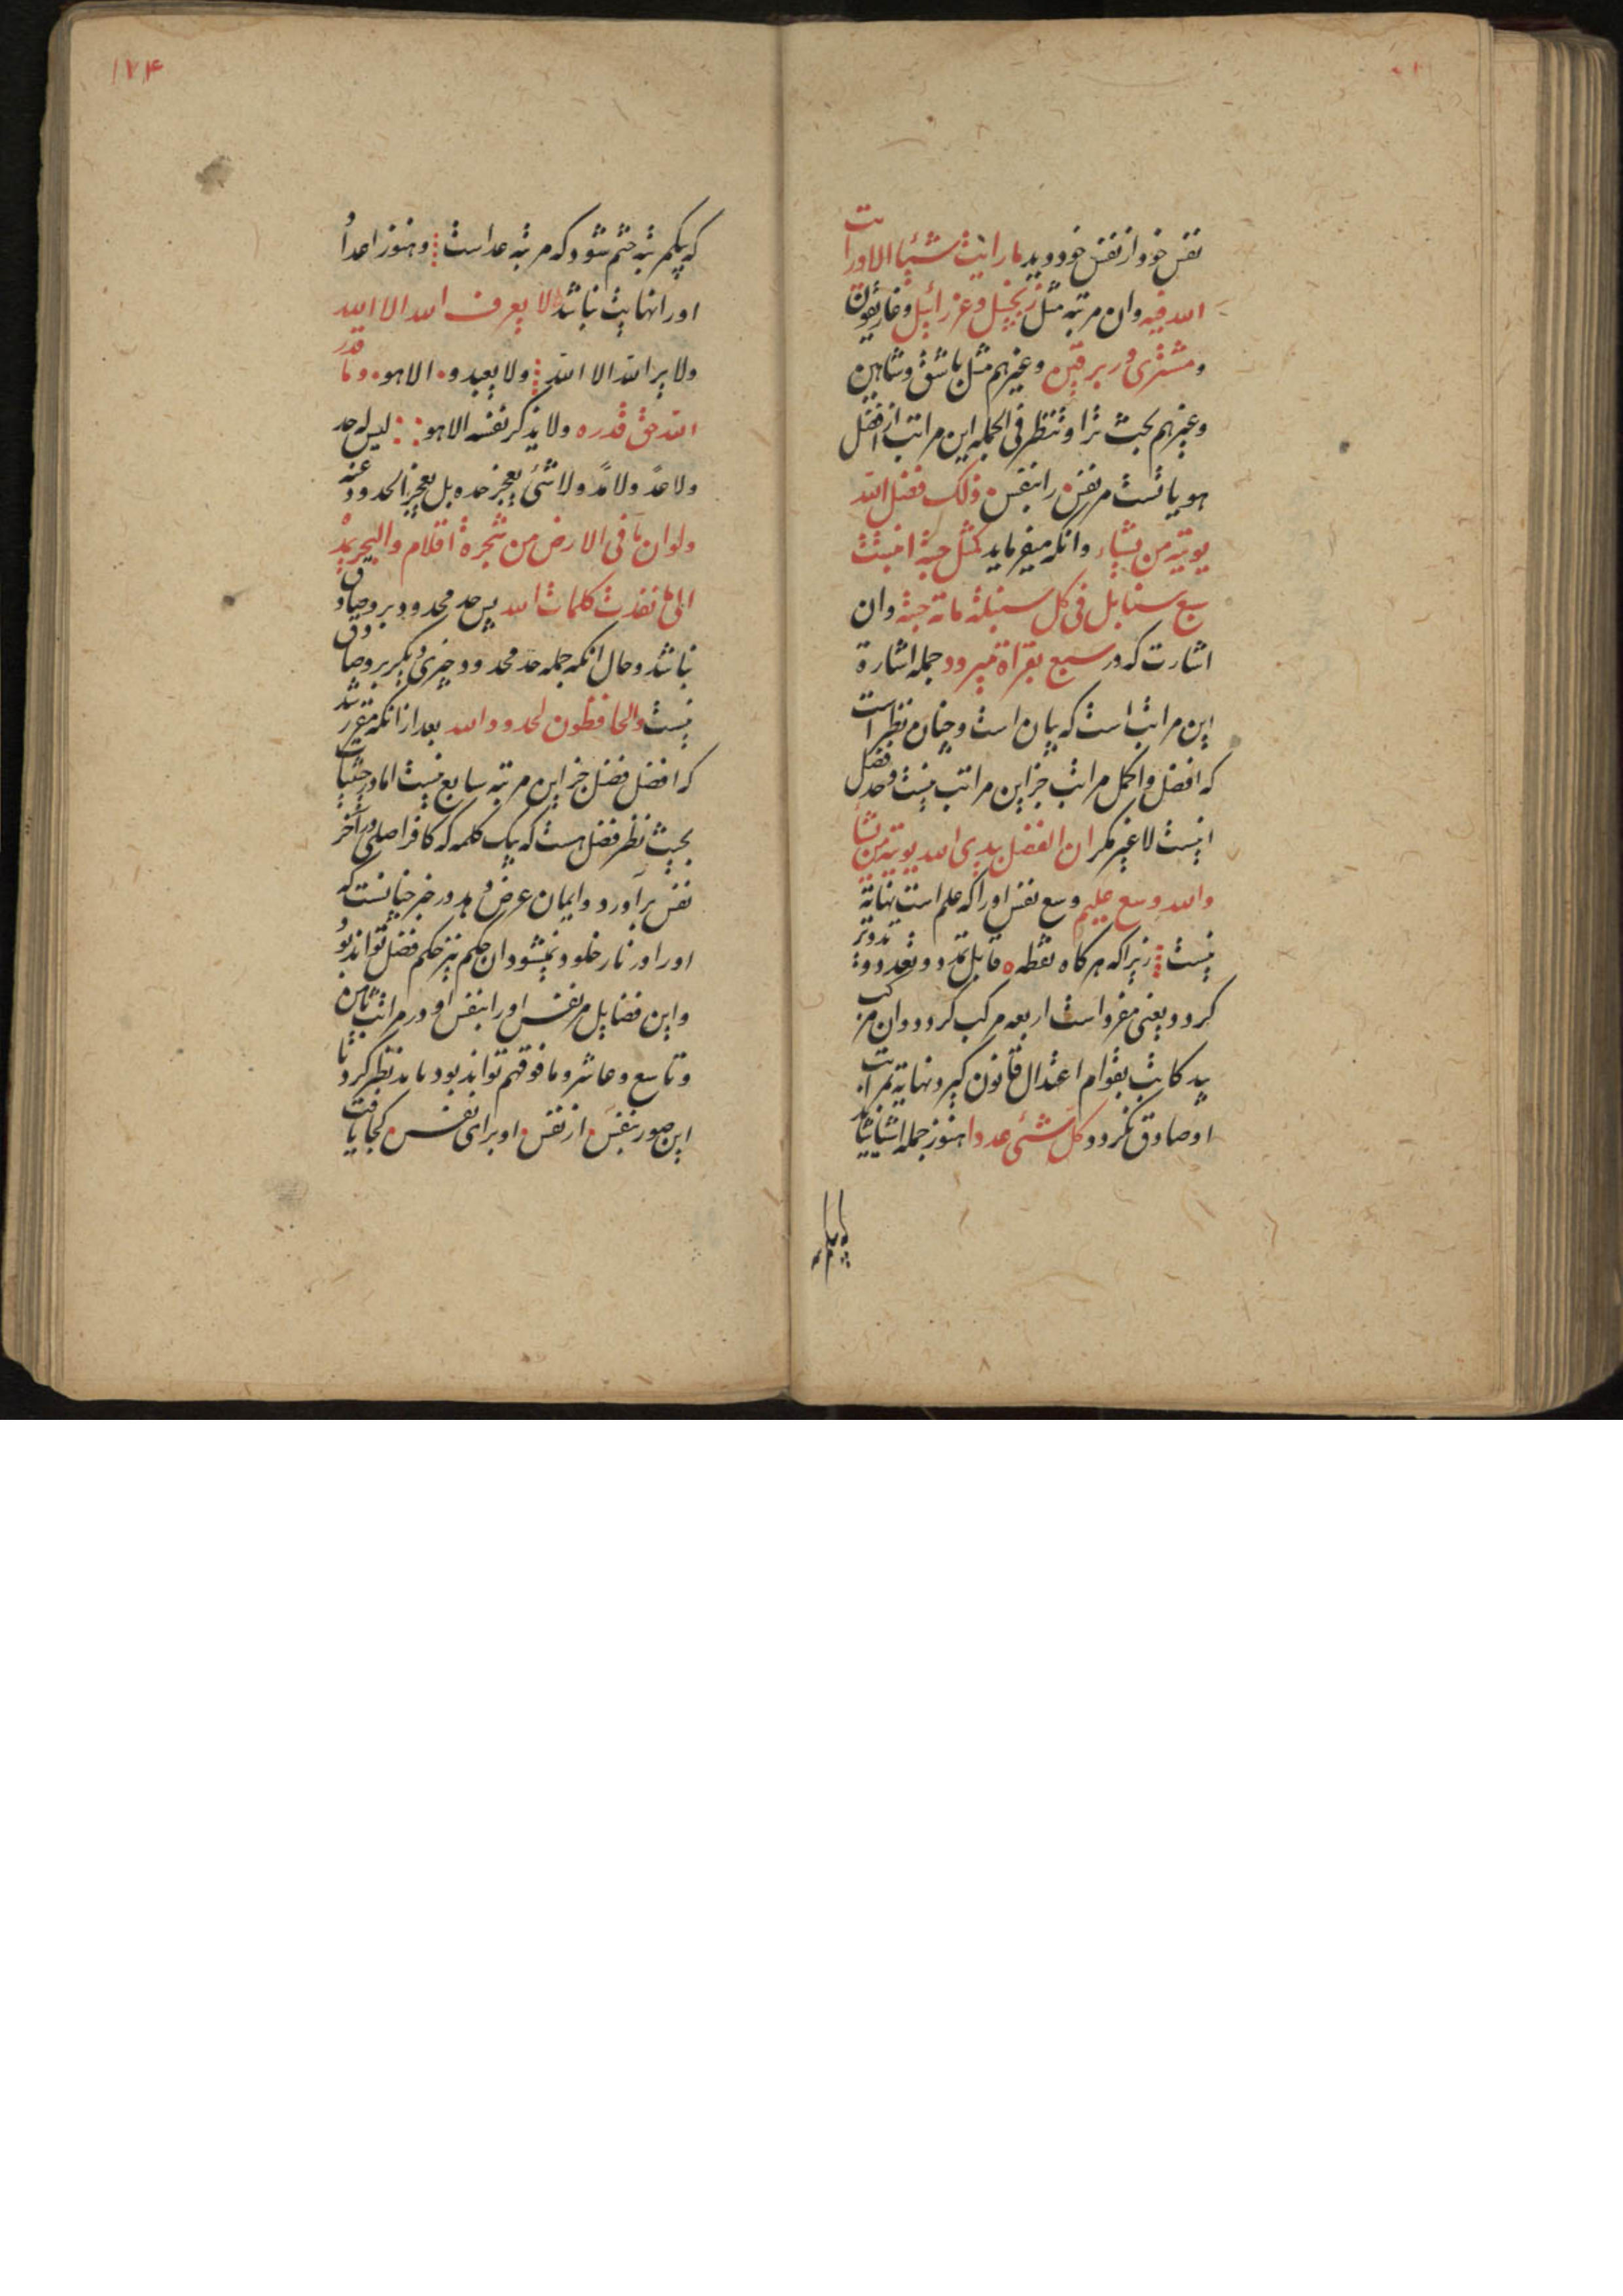 نفس خود از نفس خود دید ما رایت شیئا الا ورایت
الله فیه وان مرتبه مثل زنجبیل و عزرائیل و غاریقون
و مشتری و غیرهم مثل باشق و شاهین
و غیرهم بحث ترا و تنظر فی الجمله این مراتب از افضل
هویاتست مر نفس را بنفس ذلک فضل الله
یوتیه من یشاء وانکه میفرماید کمثل حبة انبتت
سبع سنابل فی کل سنبلة مائة حبة وان
اشارت که در سبع بقراة میرود جمله اشارة
این مراتب است که بیان است و چنان نظر است
که افضل و اکمل مراتب جز این مراتب نیست و حد فضل
اینست لا غیر مکر ان الفضل بیدی الله یوتیه من یشأ
والله وسع علیم وسع نفس اورا که علم است نهایة
نیست زیرا که هر کاه نقطه ه قابل تمدد و تعدد و
کردد یعنی مفرد است اربعه مرکب کردد وان مرکب
بقوام اعتدال قانون کیرد نهایة مراتب
او صادق نکردد کل شئی عددا هنوز جمله اشیا
که بیکمرتبه
۱۲۴
که بیکمرتبه ختم شود که مرتبه عد است وهنوز اعداد
اورا نهایت نباشد لا یعرف الله الا الله
ولا یرا الله الا الله ولا یعبده الا هو وما قدر
الله حق قدره ولا یذکر نفسه الا هو لیس له حد
ولا عد ولا مد ولا شئ یعجز حده بل یعجز الحدود عنه
ولو ان ما فی الارض من شجرة اقلام والبحر یمد
الی ما نفدت کلمات الله پس حد محدود برو صادق
نباشد وحال انکه جمله حد محدود چیزی دیکر برو صادق
نیست والحافظون لحدود الله بعد از انکه مقرر شد
که افضل فضل جز این مرتبه سابع نیست اما در حیثیات
بحیث نظر فضل هست که یک کلمه که کافر اصلی در آخر
نفس برآورد و ایمان عرض دهد در خبر چنانست که
اورا در نار خلود نمیشود ان حکم نیز حکم فضل تواند بود
واین فضایل مر نفس اورا بنفس او در مراتب ثامن
و تاسع و عاشر و ما فوقهم تواند بود باید نظر کرد تا
این صور بنفس از نفس او برای نفس کجا یافت